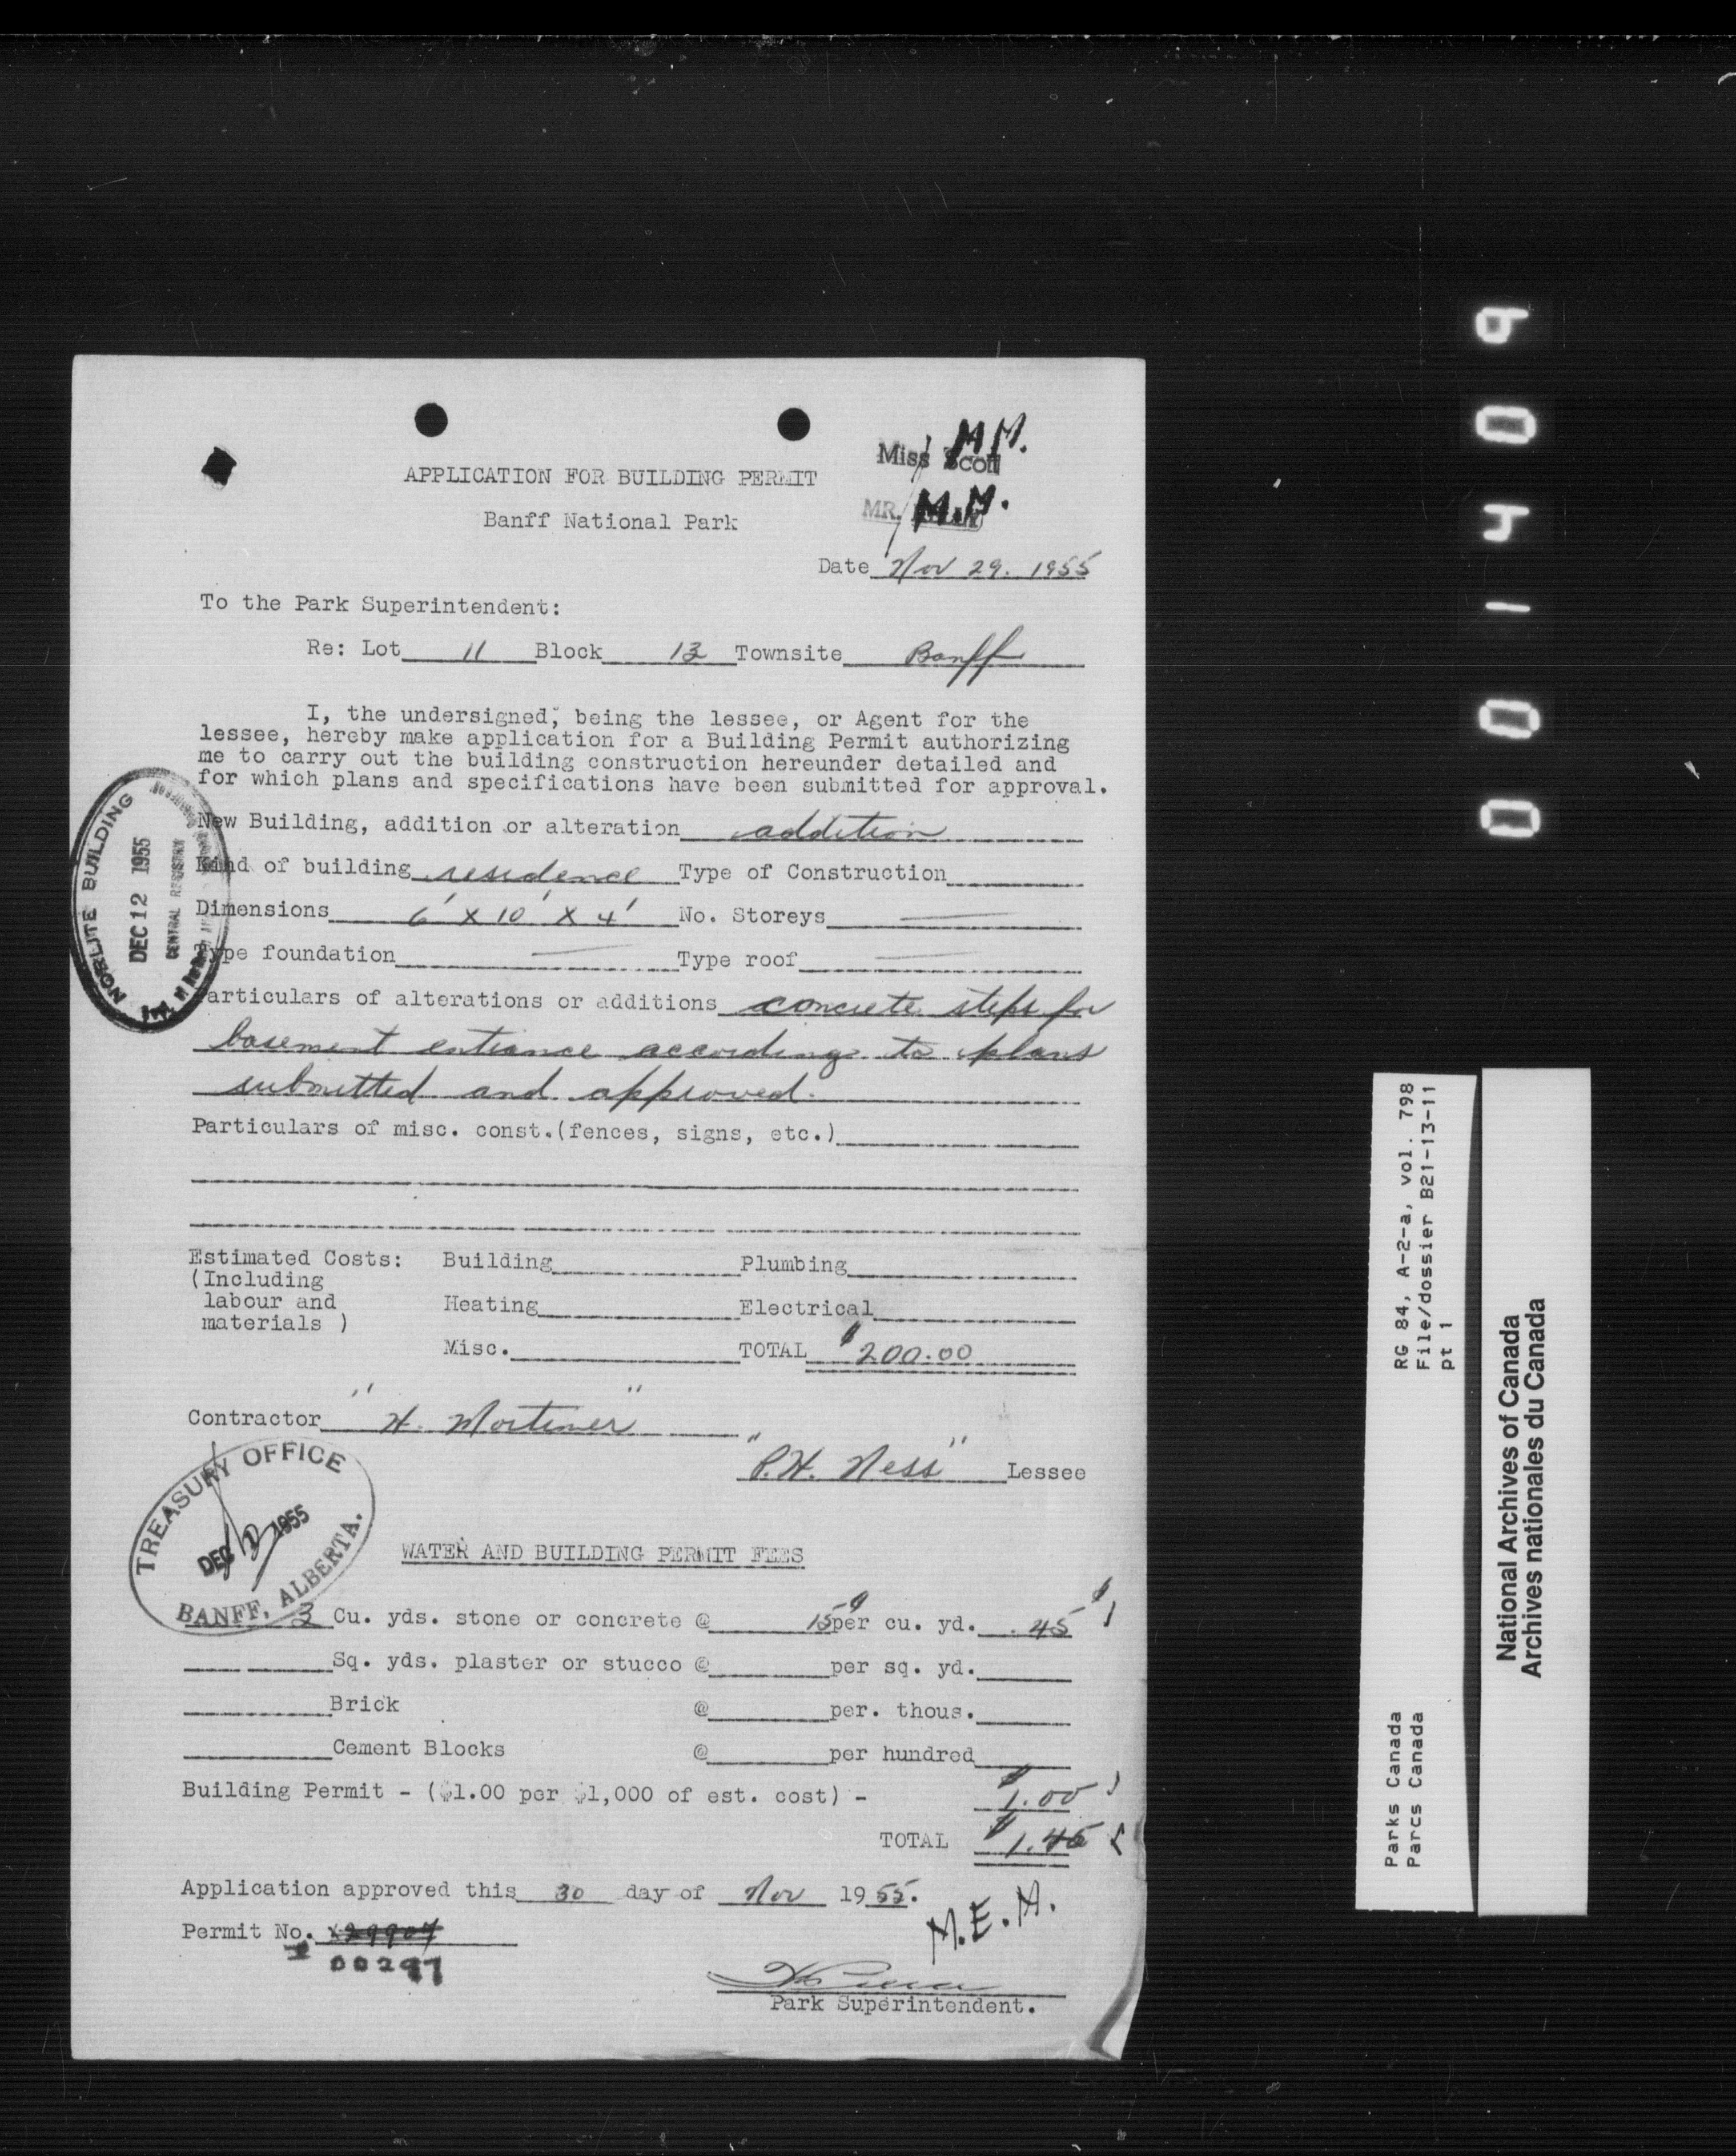 Miss Scott M.M.
MR. M.M.
APPLICATION FOR BUILDING PERMIT
Banff National Park
Date Nov 29. 1955
To the Park Superintendent:
Re: Lot 11 Block 13 Townsite Banff
I, the undersigned, being the lessee, or Agent for the
lessee, hereby make application for a Building Permit authorizing
me to carry out the building construction hereunder detailed and
for which plans and specifications have been submitted for approval.
NORLITE BUILDING
DEC 12 1955
CENTRAL REGISTRY
New Building, addition or alteration addition
Kind of building residence Type of Construction
Dimensions 6' X 10' X 4' No. Storeys —
Type foundation — Type roof —
Particulars of alterations or additions concrete steps for
basement entrance according to plans
submitted and approved.
Particulars of misc. const.(fences, signs, etc.)
Estimated Costs: Building Plumbing
(Including
labour and Heating Electrical
materials )
Misc. TOTAL $200.00
Contractor "H. Mortimer"
"P.H. Ness" Lessee
TREASURY OFFICE
DEC 1955
BANFF, ALBERTA.
WATER AND BUILDING PERMIT FEES
3 Cu. yds. stone or concrete @ 15¢ per cu. yd. $.45
Sq. yds. plaster or stucco @ per sq. yd.
Brick @ per. thous.
Cement Blocks @ per hundred
Building Permit - ($1.00 per $1,000 of est. cost) - $1.00
TOTAL $1.45
Application approved this 30 day of Nov 1955.
M.E.M.
Permit No. X29907
00297
Park Superintendent.
001409
RG 84, A-2-a, vol. 798
File/dossier B21-13-11
pt 1
Parks Canada
Parcs Canada
National Archives of Canada
Archives nationales du Canada